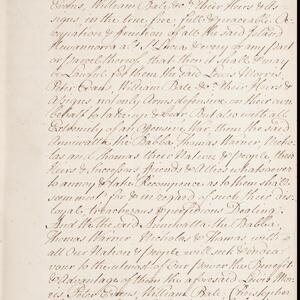 Evans, William Bale &c.a their Heirs & As-
signs, in the true, free, full & peaceable Oc-
cupation & fruition of all the said Island
Hewannorra al.s S.t Lucia & every of any part
or Parcel thereof that then it shall & may
be Lawful for them the said Lewis Morris,
Peter Evans, William Bale &c.a their Heirs &
Assigns not only Arms defensive on their own
behalf to take up & bear But also with all
Extremity of an Offensive War, them the said
Annewatta the Babba, Thomas Warner, Nicho-
las and Thomas their Natives & People, their
Heirs & Successors, friends & Allies whatsoever
to annoy & take Recompence as to them shall
seem meet for & in regard of such their dis-
loyal, treacherous & perfidious Dealing.
And We the said Annewatta the Babba,
Thomas Warner, Nicholas & Thomas with
all Our Nation & People will seek & endea-
vour to the utmost of our Power the Benefit
& Advantage of them the aforesaid Lewis Mor-
ris, Peter Evans, William Bale, Christopher